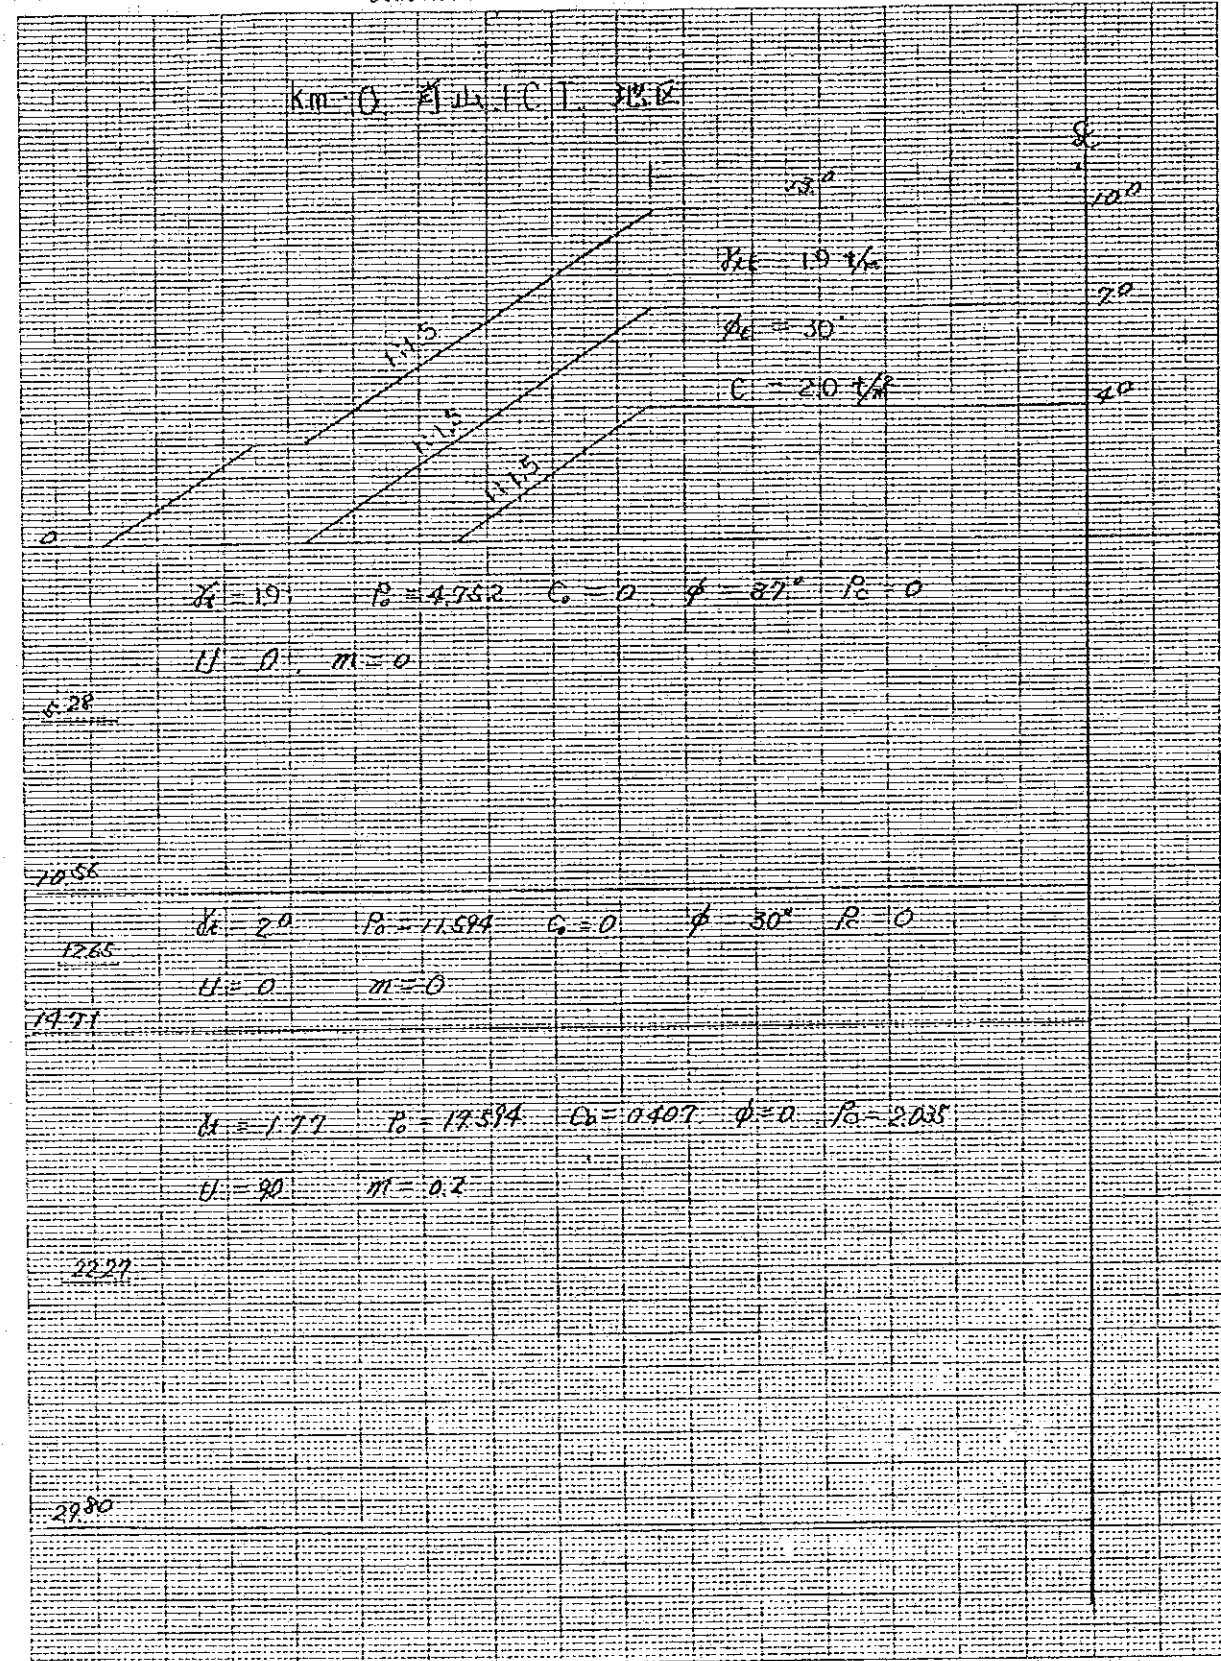 Km 0 I C T. 地区
℄
13.0
10.0
γtE = 1.9 t/m
7.0
φE = 30°
1:1.5
C = 2.0 t/m²
4.0
1:1.5
1:1.5
0
γt = 1.9 P₀ = 4.752 C₀ = 0 φ = 37.° Pc = 0
U = 0 m = 0
5.28
10.56
γt = 2.0 P₀ = 11.594 C₀ = 0 φ = 30° Pc = 0
12.65
U = 0 m = 0
14.71
γt = 1.77 P₀ = 17.594 C₀ = 0.407 φ = 0 Pc = 2.035
U = 90 m = 0.2
22.27
29.80